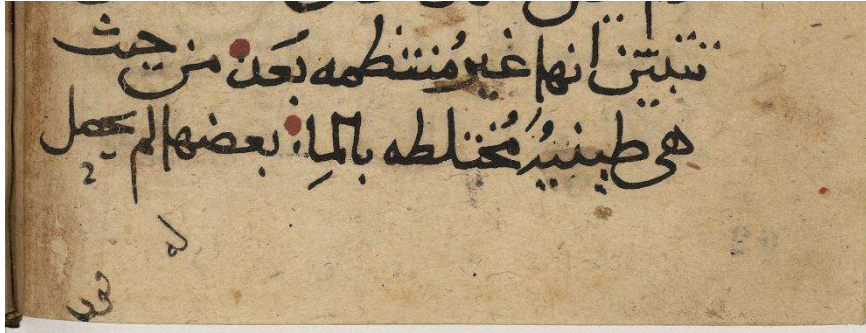 تتبيّن انها غير مُنتظمه بَعد من حيث
هى طينيه مُختلطه بالماِ بعضها لم يحمل